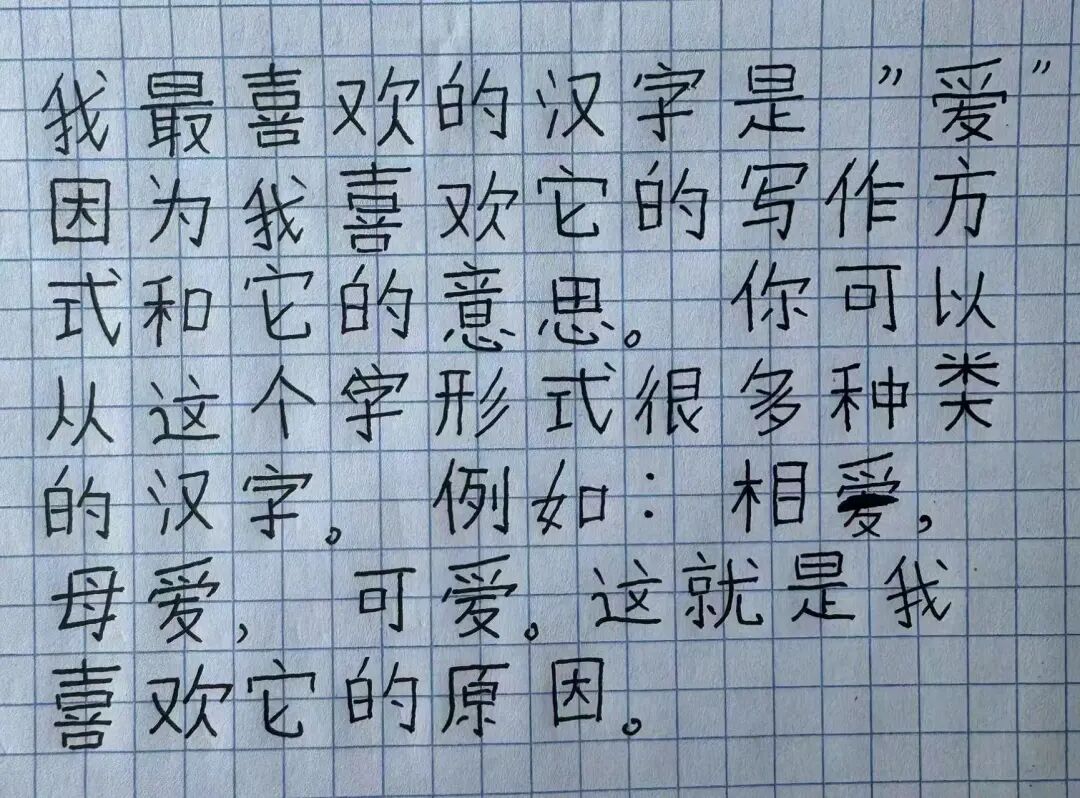 我最喜欢的汉字是”爱”
因为我喜欢它的写作方
式和它的意思。 你可以
从这个字形式很多种类
的汉字。 例如：相爱，
母爱， 可爱。这就是我
喜欢它的原因。